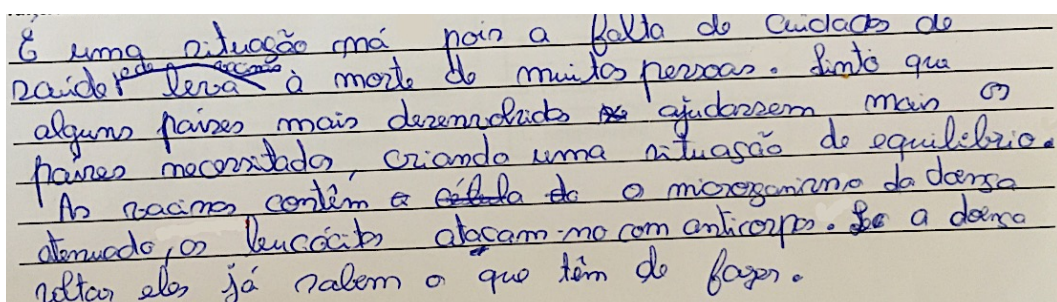 É uma situação má pois a falta de cuidados de
saúde e de vacinas leva à morte de muitas pessoas. Sinto que
alguns países mais desenvolvidos ajudassem mais os
países necessitados, criando uma situação de equilíbrio.
As vacinas contêm o microrganismo da doença
atenuado, os leucócitos atacam-no com anticorpos. Se a doença
voltar eles já sabem o que têm de fazer.